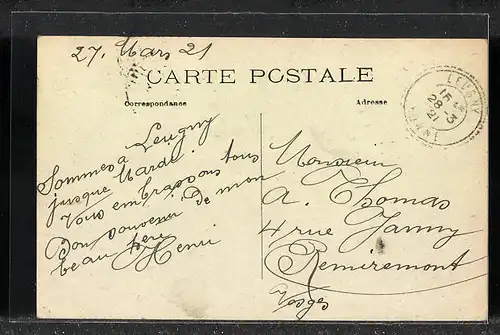 27. Mars 21
CARTE POSTALE
Correspondance
Adresse
Sommes à Leugny
jusque Mardi
Vous embrassons tous
Bon souvenir de mon
beau père
Henri
Monsieur
A. Thomas
4 rue Janny
Remiremont
Vosges
LEUGNY
15
28-3
21
YONNE